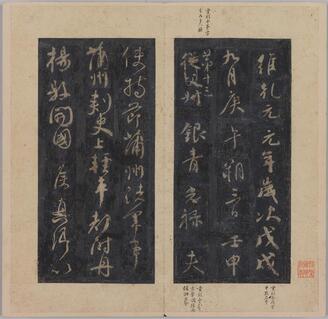 維乾元元年歲次戊戌
九月庚午朔三日壬申
第十三
從父叔銀青光祿夫
使持節蒲州諸軍事
蒲州刺史上輕車都尉丹
楊縣開國侯真卿以